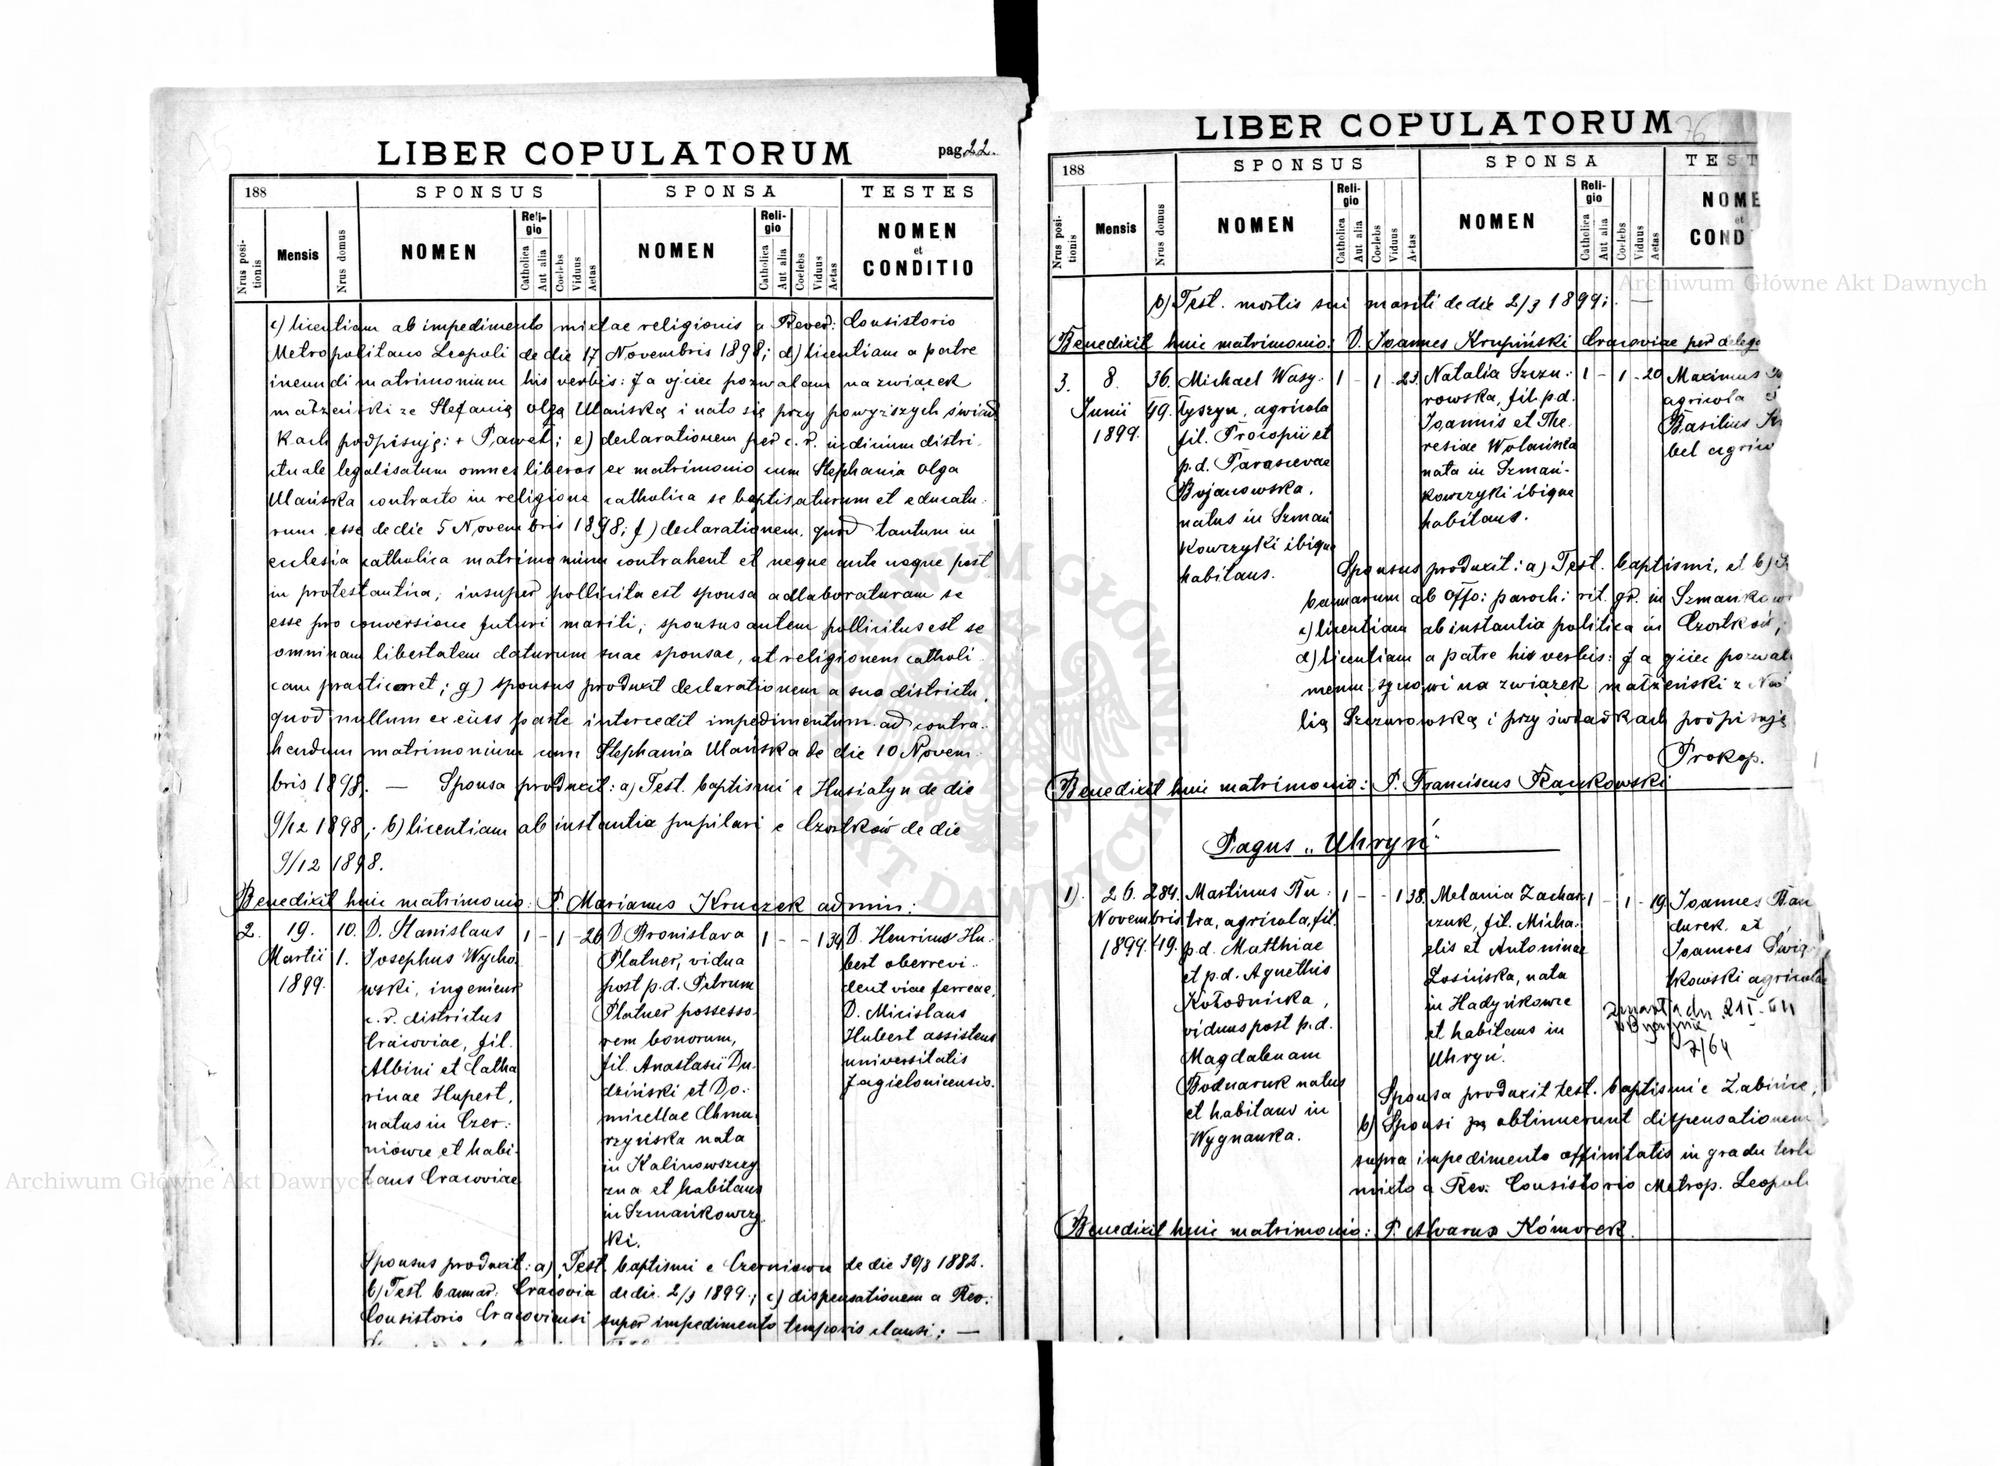 LIBER COPULATORUM
pag. 22.
188
SPONSUS
SPONSA
TESTES
Nrus positionis
Mensis
Nrus domus
NOMEN
Religio
Catholica
Aut alia
Coelebs
Viduus
Aetas
NOMEN
Religio
Catholica
Aut alia
Coelebs
Viduus
Aetas
NOMEN
et
CONDITIO
c) licentiam ab impedimento mixtae religionis a Rever: Consistorio
Metropolitano Leopoli de die 17 Novembris 1898; d) licentiam a patre
ineundi matrimonium his verbis: Ja ojciec pozwalam na związek
małżeński ze Stefanią Olgą Ulańską i na to się przy powyższych świad
kach podpisuję: + Paweł; e) declarationem per c. r. indicium distri-
ctuale legalisatum omnes liberos ex matrimonio cum Stephania Olga
Ulańska contracto in religione catholica se baptisaturum et educatu-
rum esse de die 5 Novembris 1898; f) declarationem, quod tantum in
eclesia catholica matrimonium contrahent et neque ante neque post
in protestantica; insuper pollicita est sponsa adlaboraturam se
esse pro conversione futuri mariti; sponsus autem pollicitus est se
omninam libertatem daturum suae sponsae, ut religionem catholi-
cam practicaret; g) sponsus produxit declarationem a suo districtu,
quod nullum ex eius parte intercedit impedimentum ad contra-
hendum matrimonium cum Stephania Ulańska de die 10 Novem-
bris 1898. — Sponsa produxit: a) Test. baptismi e Husiatyn de die
9/12 1898; b) licentiam ab instantia pupilari e Czortków de die
9/12 1898.
Benedixit huic matrimonio: P. Marianus Kruczek admin:
2. 19. Martii 1899. 10. 1.
D. Stanislaus
Josephus Wycho
wski, ingenieur
c. r. districtus
Cracoviae, fil.
Albini et Catha
rinae Hupert,
natus in Czer-
niowce et habi-
tans Cracoviae
1 - 1 - 26
D. Bronislava
Platner, vidua
post p.d. Petrum
Platner possesso-
rem bonorum,
fil. Anastasii Du-
dziński et Do-
micellae Chmu-
rzyńska nata
in Kalinowszczy
zna et habitans
in Szmańkowczy
ki.
1 - - 1 34
D. Henricus Hu-
bert oberrevi-
dent viae ferreae,
D. Micislaus
Hubert assistens
universitatis
Jagielonicensis.
Sponsus produxit: a) Test. baptismi e Czerniowce de die 30/8 1882.
b) Test. bannor. Cracovia de die 2/3 1899; c) dispensationem a Rev:
Consistorio Cracoviensi super impedimento temporis clausi; —
LIBER COPULATORUM
76
188
SPONSUS
SPONSA
TEST
Nrus positionis
Mensis
Nrus domus
NOMEN
Religio
Catholica
Aut alia
Coelebs
Viduus
Aetas
NOMEN
Religio
Catholica
Aut alia
Coelebs
Viduus
Aetas
NOME
et
COND
b) Test. mortis sui mariti de die 2/3 1899; —
Benedixit huic matrimonio: D. Joannes Krupiński Cracoviae per delega
3. 8. Junii 1899. 36. 49.
Michael Wasy-
łyszyn, agricola
fil. Procopii et
p.d. Parascevae
Bojanowska,
natus in Szmań
kowczyki ibique
habitans.
1 - 1 - 23
Natalia Szczu-
rowska, fil. p.d.
Joannis et The-
resiae Wolańska
nata in Szmań-
kowczyki ibique
habitans.
1 - 1 - 20
Maximus
agricola
Basilius
bel agrico
Sponsus produxit: a) Test. baptismi, et b)
bannorum ab Offo: paroch: rit. gr. in Szmańkow
c) licentiam ab instantia politica in Czortków;
d) licentiam a patre his verbis: Ja ojciec pozwal
memu synowi na związek małżeński z Na
lią Szczurowską i przy świadkach podpisuję
Prokop.
Benedixit huic matrimonio: P. Franciscus Rankowski
Pagus „Uhryń"
1). 26. Novembris 1899. 284. 19.
Martinus Bu-
tra, agricola, fil.
p.d. Matthiae
et p.d. Agnethis
Kołodnicka,
viduus post p.d.
Magdalenam
Bodnaruk natus
et habitans in
Wygnanka.
1 - - 1 38
Melania Zachar
czuk, fil. Micha-
elis et Antoninae
Łosińska, nata
in Hadyńkowce
et habitans in
Uhryń.
1 - 1 - 19
Joannes Ban
durek et
Joannes Świą-
tkowski agricolae
Sponsa produxit test. baptismi e Żabińce,
b) Sponsi obtinuerunt dispensationem
supra impedimento affinitatis in gradu tertio
mixto a Rev: Consistorio Metrop. Leopoli
Benedixit huic matrimonio: P. Alvarus Komorek.
Archiwum Główne Akt Dawnych
Archiwum Główne Akt Dawnych
ARCHIWUM GŁÓWNE AKT DAWNYCH